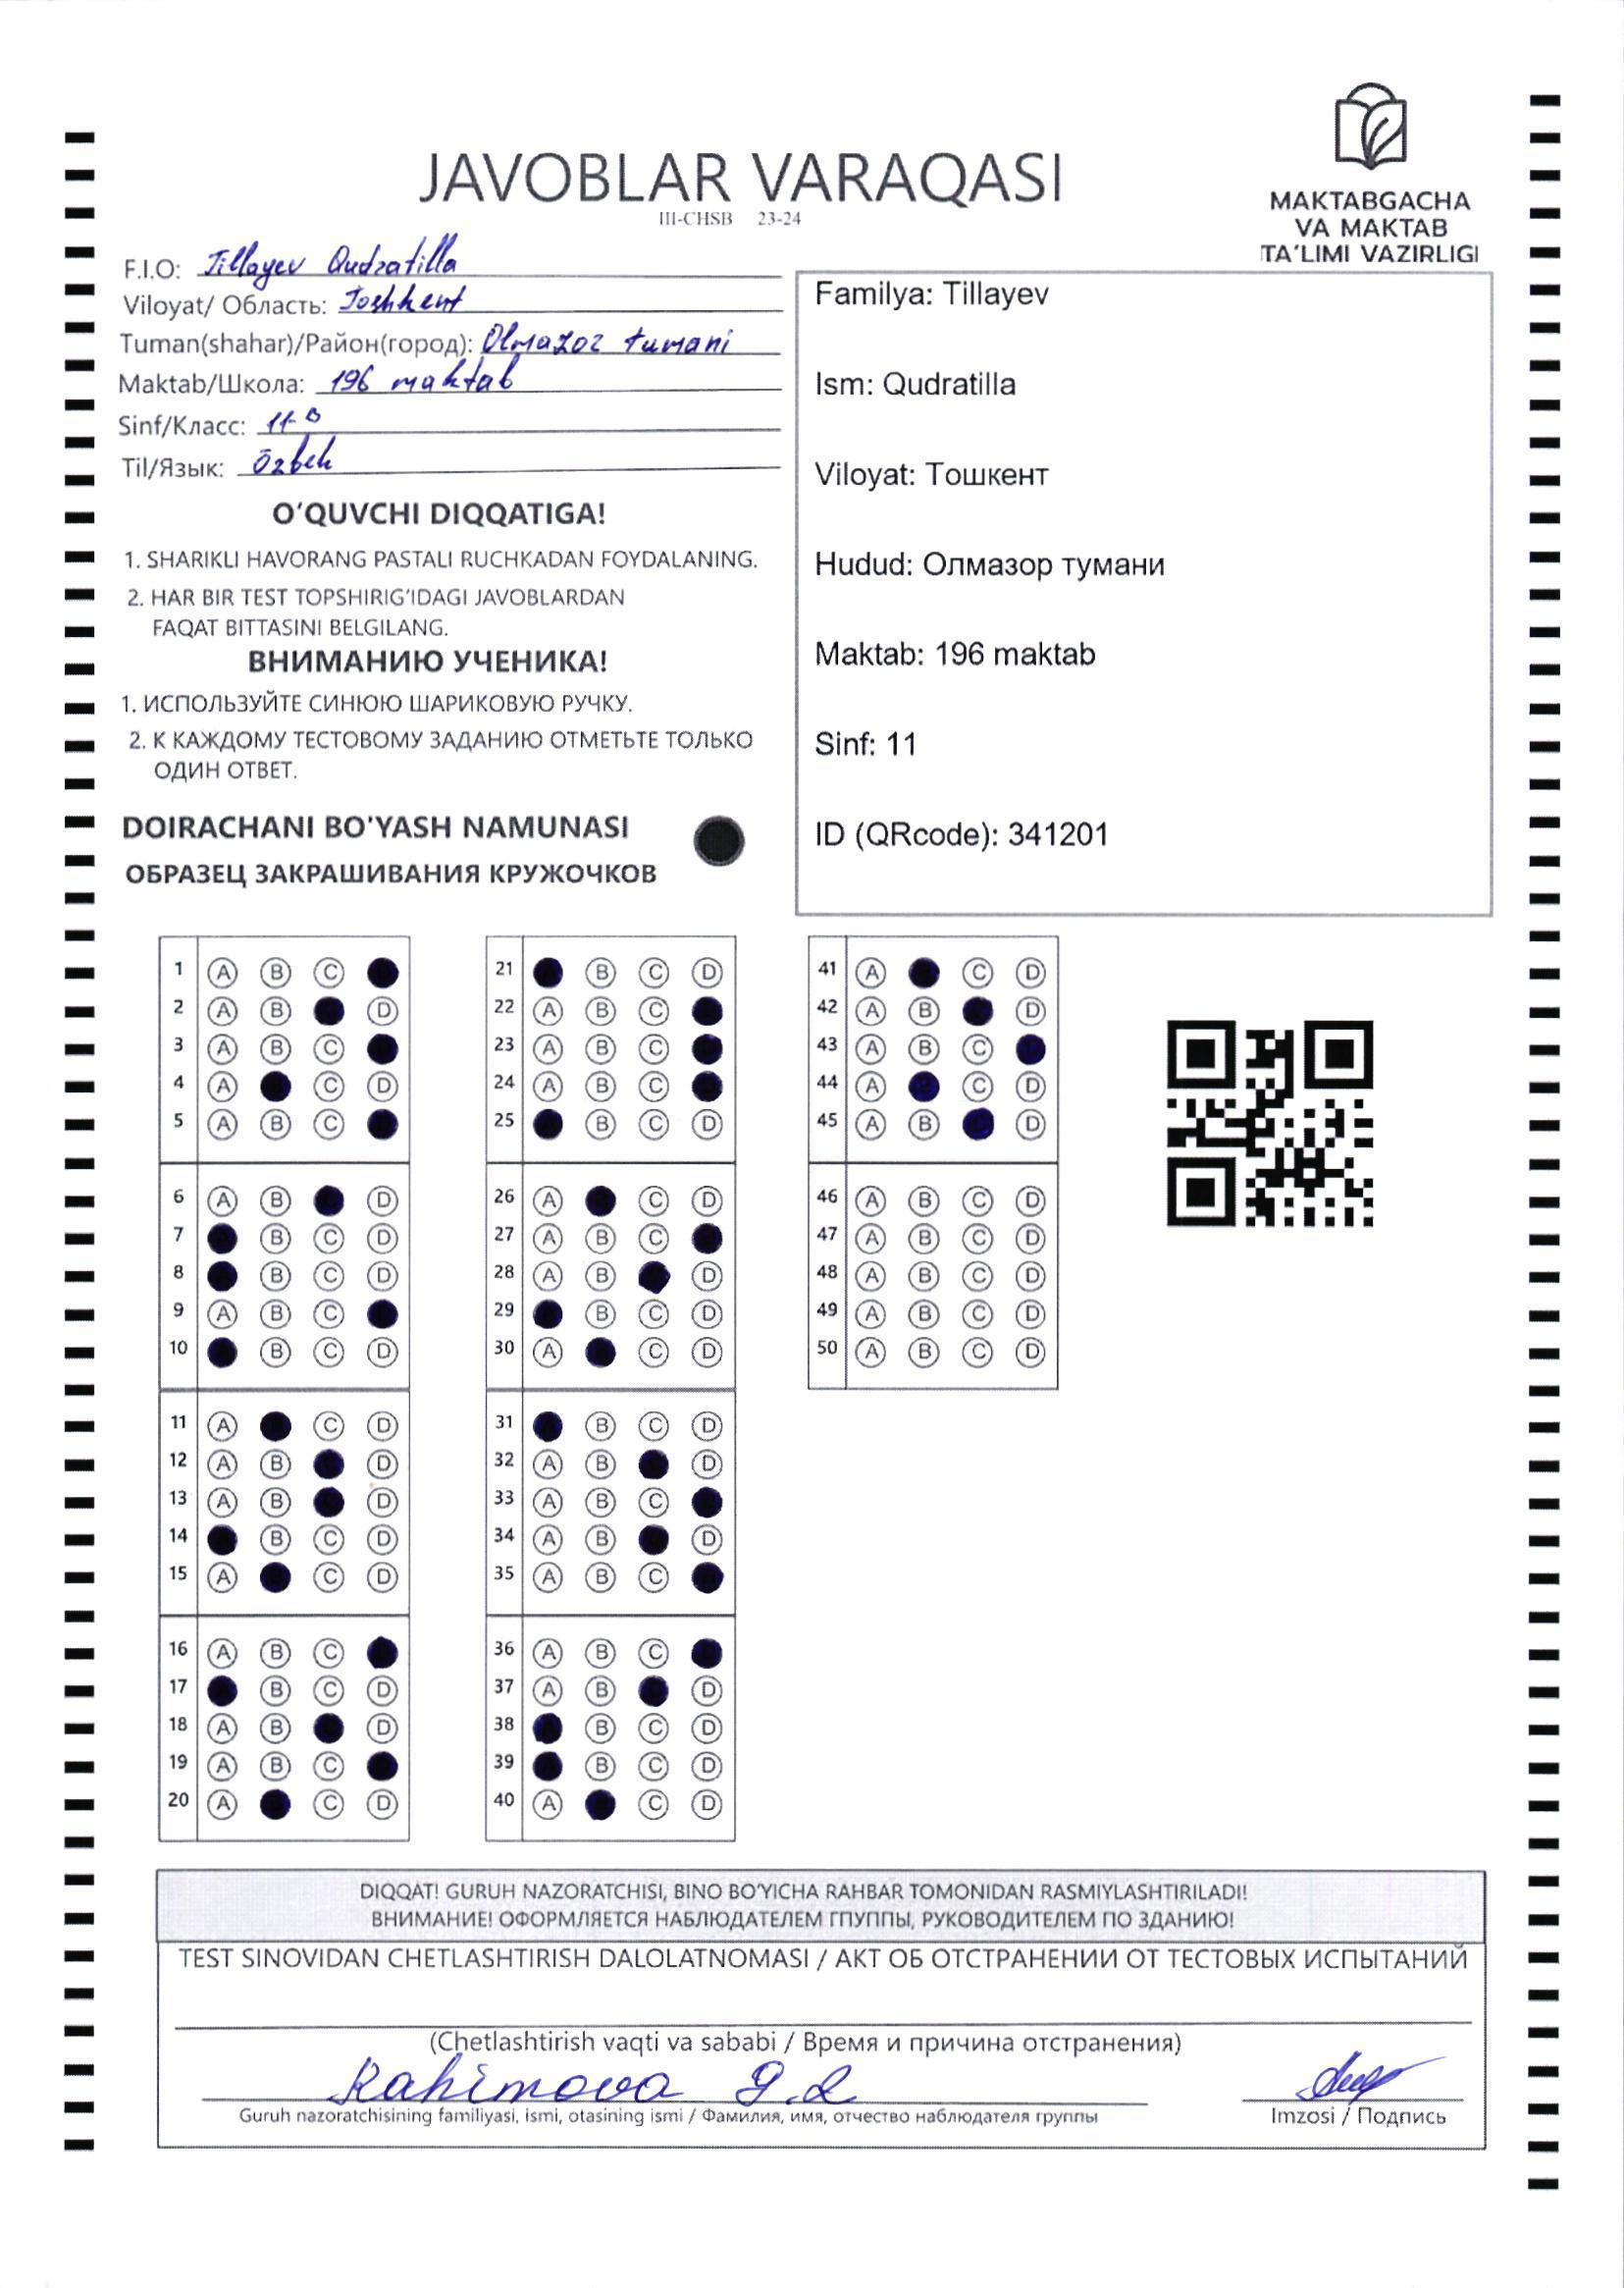 JAVOBLAR VARAQASI
III-CHSB 23-24
MAKTABGACHA
VA MAKTAB
TA'LIMI VAZIRLIGI
F.I.O: Tillayev Qudratilla
Viloyat/ Область: Toshkent
Tuman(shahar)/Район(город): Olmazor tumani
Maktab/Школа: 196 maktab
Sinf/Класс: 11-B
Til/Язык: Özbek
O'QUVCHI DIQQATIGA!
1. SHARIKLI HAVORANG PASTALI RUCHKADAN FOYDALANING.
2. HAR BIR TEST TOPSHIRIG'IDAGI JAVOBLARDAN
FAQAT BITTASINI BELGILANG.
ВНИМАНИЮ УЧЕНИКА!
1. ИСПОЛЬЗУЙТЕ СИНЮЮ ШАРИКОВУЮ РУЧКУ.
2. К КАЖДОМУ ТЕСТОВОМУ ЗАДАНИЮ ОТМЕТЬТЕ ТОЛЬКО
ОДИН ОТВЕТ.
DOIRACHANI BO'YASH NAMUNASI
ОБРАЗЕЦ ЗАКРАШИВАНИЯ КРУЖОЧКОВ
Familya: Tillayev
Ism: Qudratilla
Viloyat: Тошкент
Hudud: Олмазор тумани
Maktab: 196 maktab
Sinf: 11
ID (QRcode): 341201
1 A B C
2 A B D
3 A B C
4 A C D
5 A B C
6 A B D
7 B C D
8 B C D
9 A B C
10 B C D
11 A C D
12 A B D
13 A B D
14 B C D
15 A C D
16 A B C
17 B C D
18 A B D
19 A B C
20 A C D
21 B C D
22 A B C
23 A B C
24 A B C
25 B C D
26 A C D
27 A B C
28 A B D
29 B C D
30 A C D
31 B C D
32 A B D
33 A B C
34 A B D
35 A B C
36 A B C
37 A B D
38 B C D
39 B C D
40 A C D
41 A C D
42 A B D
43 A B C
44 A C D
45 A B D
46 A B C D
47 A B C D
48 A B C D
49 A B C D
50 A B C D
DIQQAT! GURUH NAZORATCHISI, BINO BO'YICHA RAHBAR TOMONIDAN RASMIYLASHTIRILADI!
ВНИМАНИЕ! ОФОРМЛЯЕТСЯ НАБЛЮДАТЕЛЕМ ГПУППЫ, РУКОВОДИТЕЛЕМ ПО ЗДАНИЮ!
TEST SINOVIDAN CHETLASHTIRISH DALOLATNOMASI / АКТ ОБ ОТСТРАНЕНИИ ОТ ТЕСТОВЫХ ИСПЫТАНИЙ
(Chetlashtirish vaqti va sababi / Время и причина отстранения)
Rahimova G.R
Guruh nazoratchisining familiyasi, ismi, otasining ismi / Фамилия, имя, отчество наблюдателя группы
Imzosi / Подпись